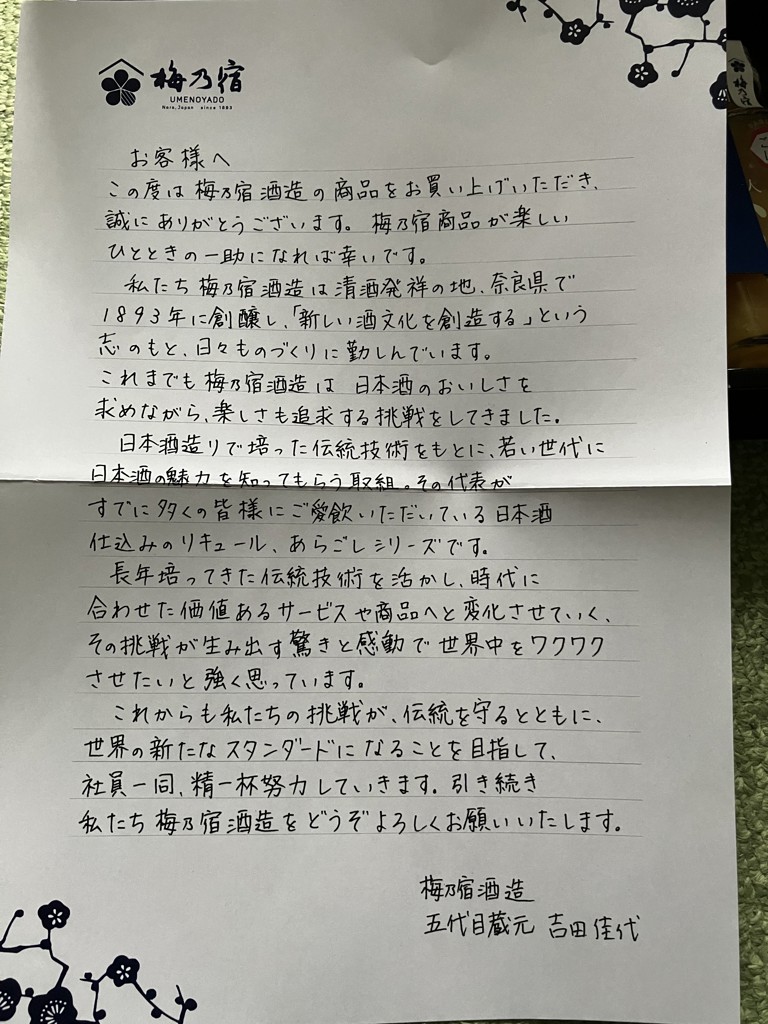 梅乃宿
UMENOYADO
Nara, Japan since 1893
お客様へ
この度は梅乃宿酒造の商品をお買い上げいただき、
誠にありがとうございます。梅乃宿商品が楽しい
ひとときの一助になれば幸いです。
私たち梅乃宿酒造は清酒発祥の地、奈良県で
1893年に創醸し、「新しい酒文化を創造する」という
志のもと、日々ものづくりに勤しんでいます。
これまでも梅乃宿酒造は日本酒のおいしさを
求めながら、楽しさも追求する挑戦をしてきました。
日本酒造りで培った伝統技術をもとに、若い世代に
日本酒の魅力を知ってもらう取組。その代表が
すでに多くの皆様にご愛飲いただいている日本酒
仕込みのリキュール、あらごしシリーズです。
長年培ってきた伝統技術を活かし、時代に
合わせた価値あるサービスや商品へと変化させていく、
その挑戦が生み出す驚きと感動で世界中をワクワク
させたいと強く思っています。
これからも私たちの挑戦が、伝統を守るとともに、
世界の新たなスタンダードになることを目指して、
社員一同、精一杯努力していきます。引き続き
私たち梅乃宿酒造をどうぞよろしくお願いいたします。
梅乃宿酒造
五代目蔵元 吉田佳代
梅乃宿